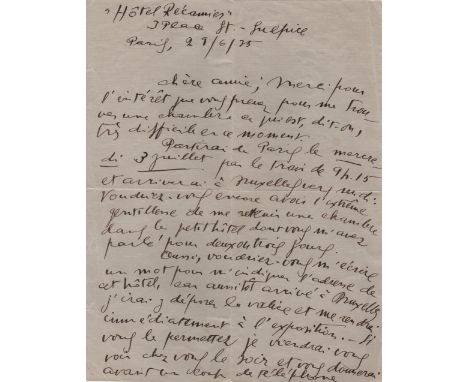 "Hôtel Récamier"
3 Place St.-Sulpice
Paris, 28/6/35
chère amie; Merci pour
l'intérêt que vous prenez pour me trou-
ver une chambre ce qui est, dit-on,
très difficile en ce moment.
Partirai de Paris le mercre-
di 3 juillet par le train de 9h.15
et arriverai à Bruxelles vers midi.
Voudriez-vous encore avoir l'extrême
gentillesse de me retenir une chambre
dans le petit hôtel dont vous m'avez
parlé pour deux ou trois jours.
Aussi, voudriez-vous m'écrire
un mot pour m'indiquer l'adresse de
cet hôtel, car aussitôt arrivé à Bruxelles
j'irai y déposer la valise et me rendrai
immédiatement à l'exposition... Si
vous le permettez je viendrai vous
voir chez vous le soir et vous donnerai
avant un coup de téléphone